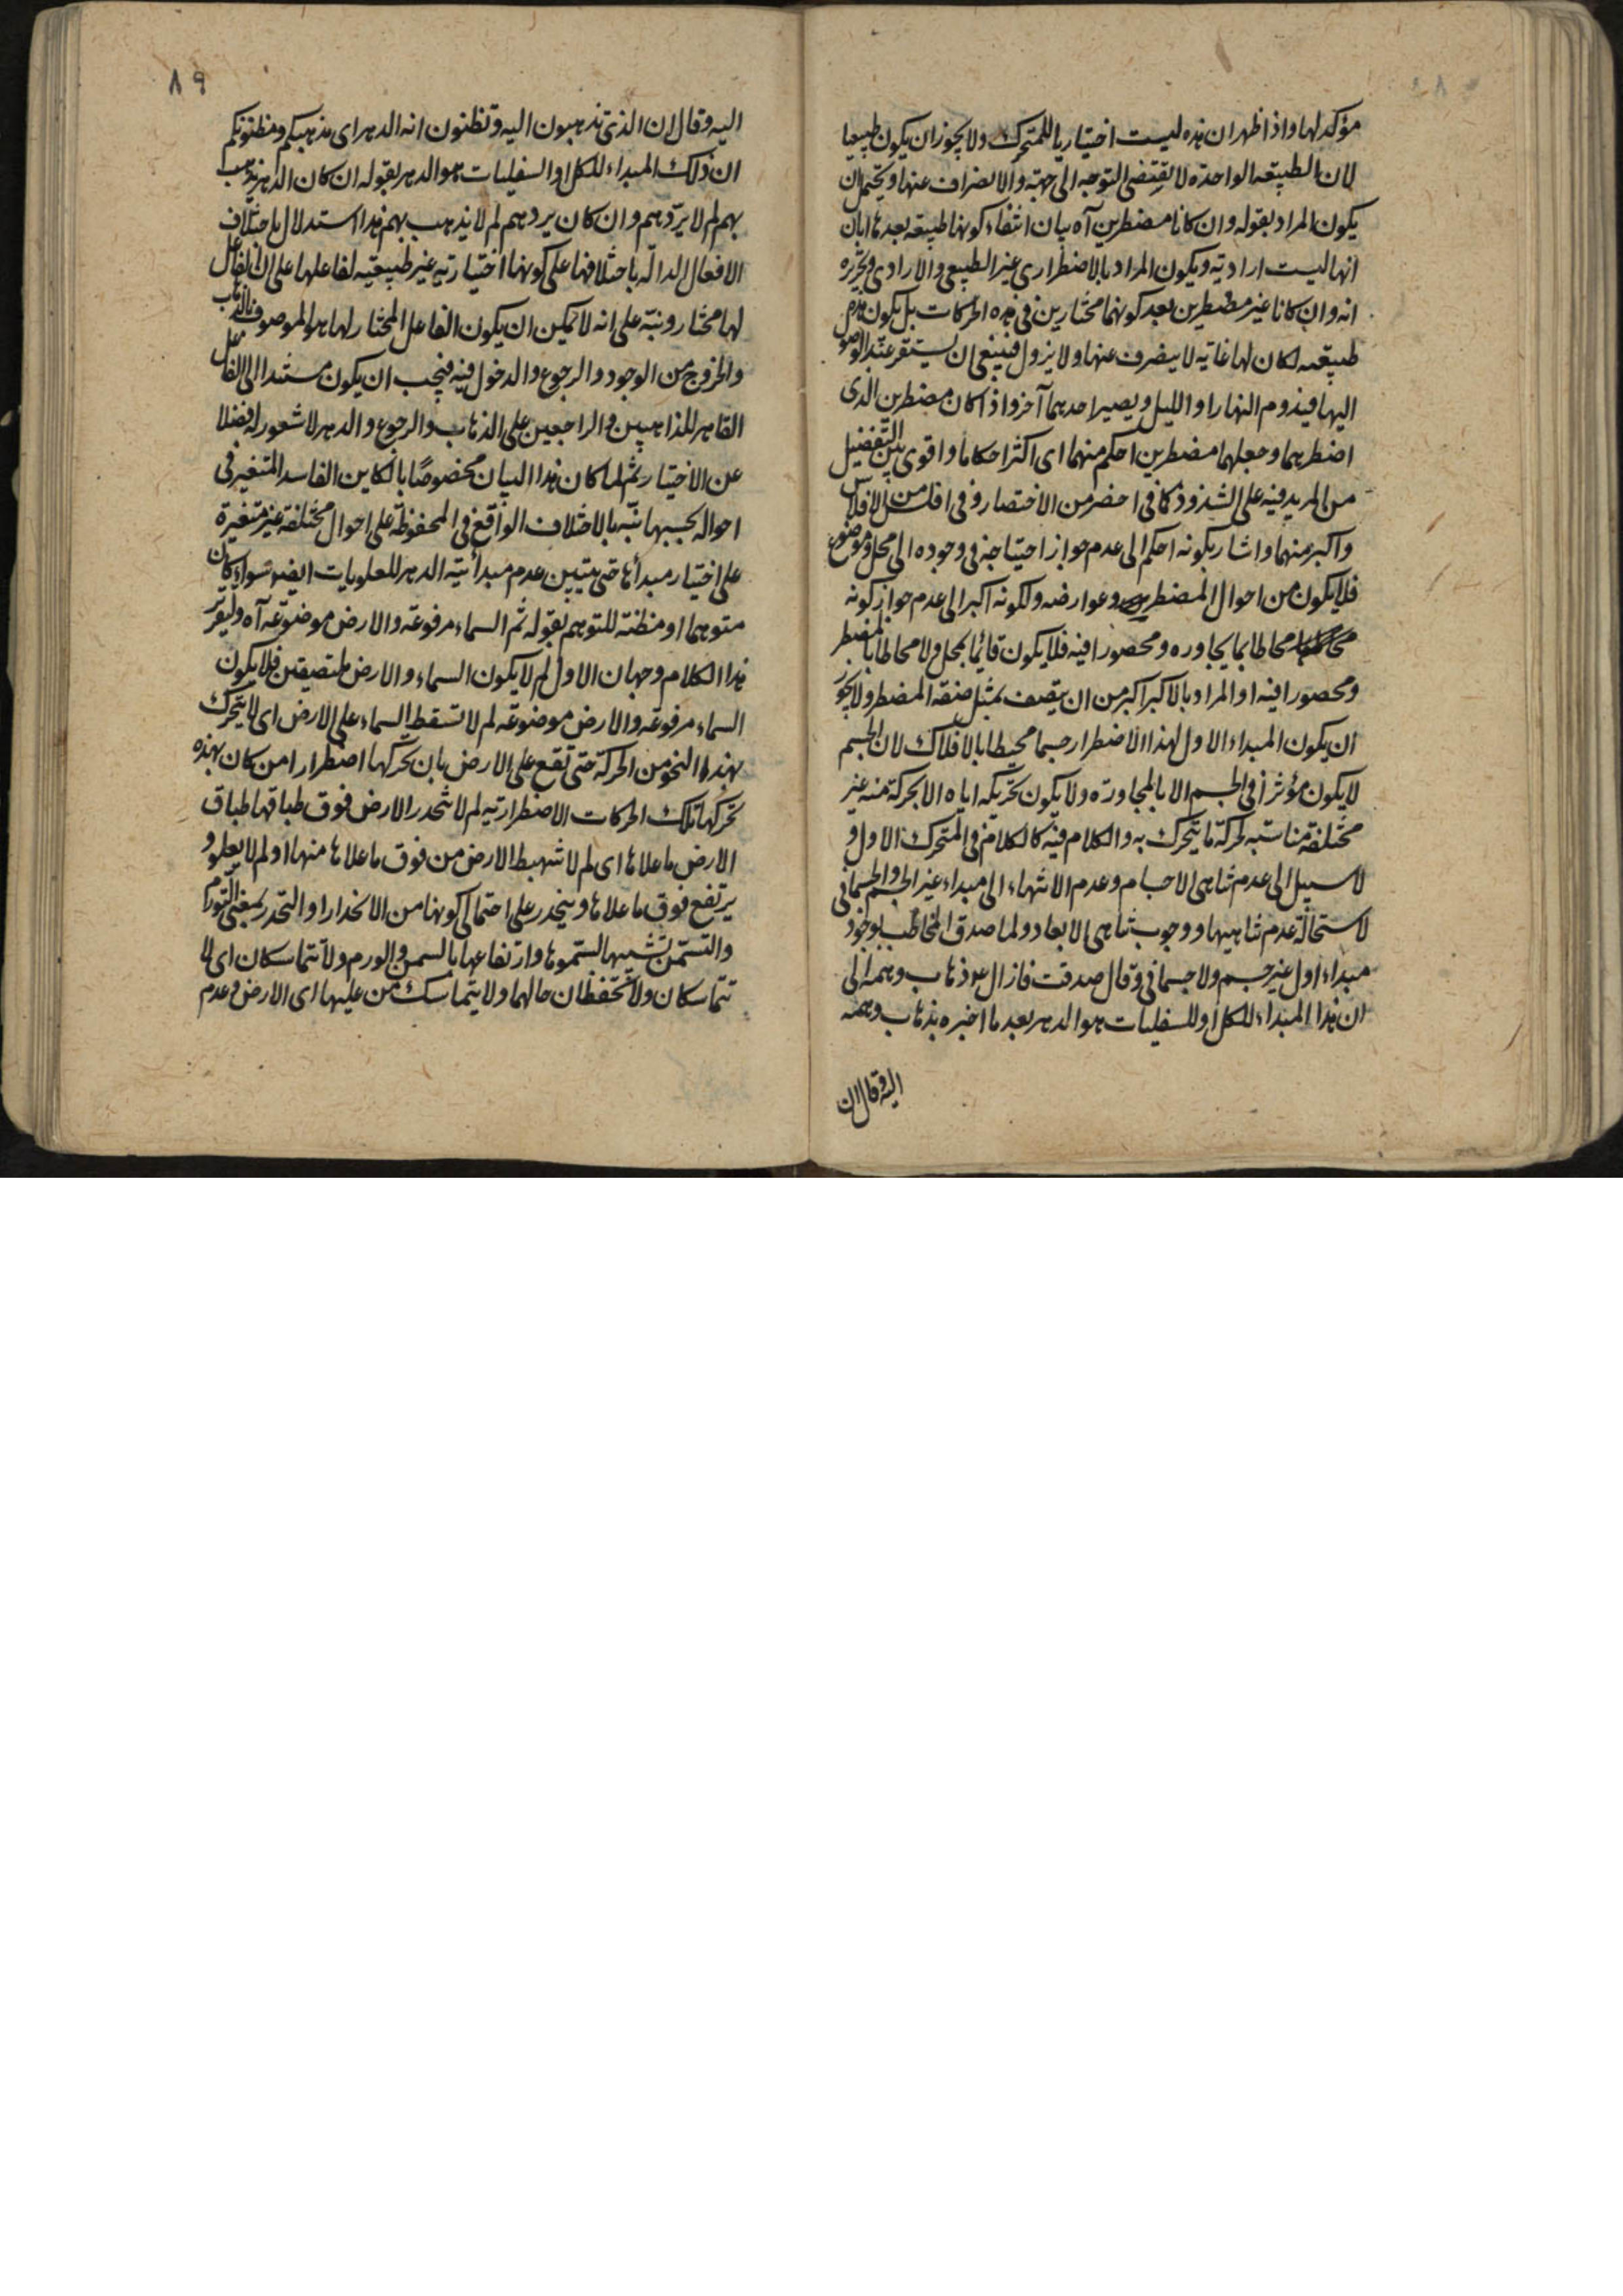 مؤكد لها واذا ظهر ان هذه ليست اختياريا للمتحرك ولا يجوز ان يكون طبيعيا
لان الطبيعة الواحدة لا تقتضى التوجه الى جهة والانصراف عنها ويحتمل ان
يكون المراد بقوله وان كانا مضطرين آه بيان انتفاء كونها طبيعة بعد ما ابان
انها ليست ارادية ويكون المراد بالاضطرارى غير الطبيعى والارادى وتحريره
انه وان كانا غير مضطرين بعد كونهما مختارين فى هذه الحركات بل يكون هذه
طبيعه لكان لها غاية لا ينصرف عنها ولا يزول فينبغى ان يستقر عند الوصول
اليها فيدوم النهار او الليل ويصير احدهما آخر واذا كان مضطرين الذى
اضطرهما وجعلهما مضطرين احكم منهما اى اكثر احكاما واقوى بين التفضيل
من المزيد فيه على الشذوذ كما فى اخصر من الاختصار وفى افلس من الافلاس
واكبر منهما واشار بكونه احكم الى عدم جواز احتياجه فى وجوده الى محل وموضوع
فلا يكون من احوال المضطرين وعوارضه ولكونه اكبر الى عدم جواز كونه
محاطا بما يجاوره ومحصورا فيه فلا يكون قائما بمحل ولا محاطا بالمضطر
ومحصورا فيه او المراد بالاكبر اكبر من ان يتصف بمثل صفة المضطر ولا يجوز
ان يكون المبداء الاول لهذا الاضطرار جسما محيطا بالافلاك لان الجسم
لا يكون مؤثرا فى الجسم الا بالمجاورة ولا يكون تحريكه اياه الا بحركة منه غير
مختلفة مناسبه لحركة ما يتحرك به والكلام فيه كالكلام فى المتحرك الاول و
لا سبيل الى عدم تناهى الاجسام وعدم الانتهاء الى مبداء غير الجسم والجسمانى
لاستحالة عدم تناهيها ووجوب تناهى الابعاد ولما صدق المخاطب بوجود
مبداء اول غير جسم ولا جسمانى وقال صدقت فازال عليه السلام ذهاب وهمه الى
ان هذا المبداء للكل او للسفليات هو الدهر بعد ما اخبره بذهاب وهمه
اليه وقال ان
٨٩
اليه وقال ان الذى تذهبون اليه وتظنون انه الدهر اى مذهبكم ومظنونكم
ان ذلك المبداء للكل او السفليات هو الدهر بقوله ان كان الدهر يذهب
بهم لم لا يردهم وان كان يردهم لم لا يذهب بهم هذا استدلال باختلاف
الافعال الدالة باختلافها على كونها اختيارية غير طبيعية لفاعلها على ان الفاعل
لها مختار ونبه على انه لا يمكن ان يكون الفاعل المختار لها هو الموصوف بالذهاب
والخروج من الوجود والرجوع والدخول فيه فيجب ان يكون مستندا الى الفاعل
القاهر للذاهبين والراجعين على الذهاب والرجوع والدهر لا شعور له فضلا
عن الاختيار ثم لما كان هذا البيان مخصوصًا بالكاين الفاسد المتغير فى
احواله بحسبها نبه بالاختلاف الواقع فى المحفوظة على احوال مختلفة غير متغيرة
على اختيار مبدأها حتى يتبين عدم مبدأئية الدهر للعلويات ايضو سواء كان
متوهما او مظنة للتوهم بقوله ثم السماء مرفوعة والارض موضوعه آه ولتقرير
هذا الكلام وجهان الاول لم لا يكون السماء والارض ملتصقتين فلا يكون
السماء مرفوعة والارض موضوعه لم لا تسقط السماء على الارض اى لا يتحرك
بهذا النحو من الحركة حتى تقع على الارض بان يحركها اضطرارا من كان بهذه
تحركها تلك الحركات الاضطرارية لم لا تنحدر الارض فوق طباقها طباق
الارض ما علاها اى لم لا تهبط الارض من فوق ما علاها منها او لم لا يعلو و
يرتفع فوق ما علاها وينحدر على احتمالى كونها من الانحدار او التحدر بمعنى التورم
والتسمن تشبيها لسموها وارتفاعها بالسمن والورم ولا تتماسكان اى لا
تتماسكان ولا تحفظان حالهما ولا يتماسك من عليها اى الارض وعدم